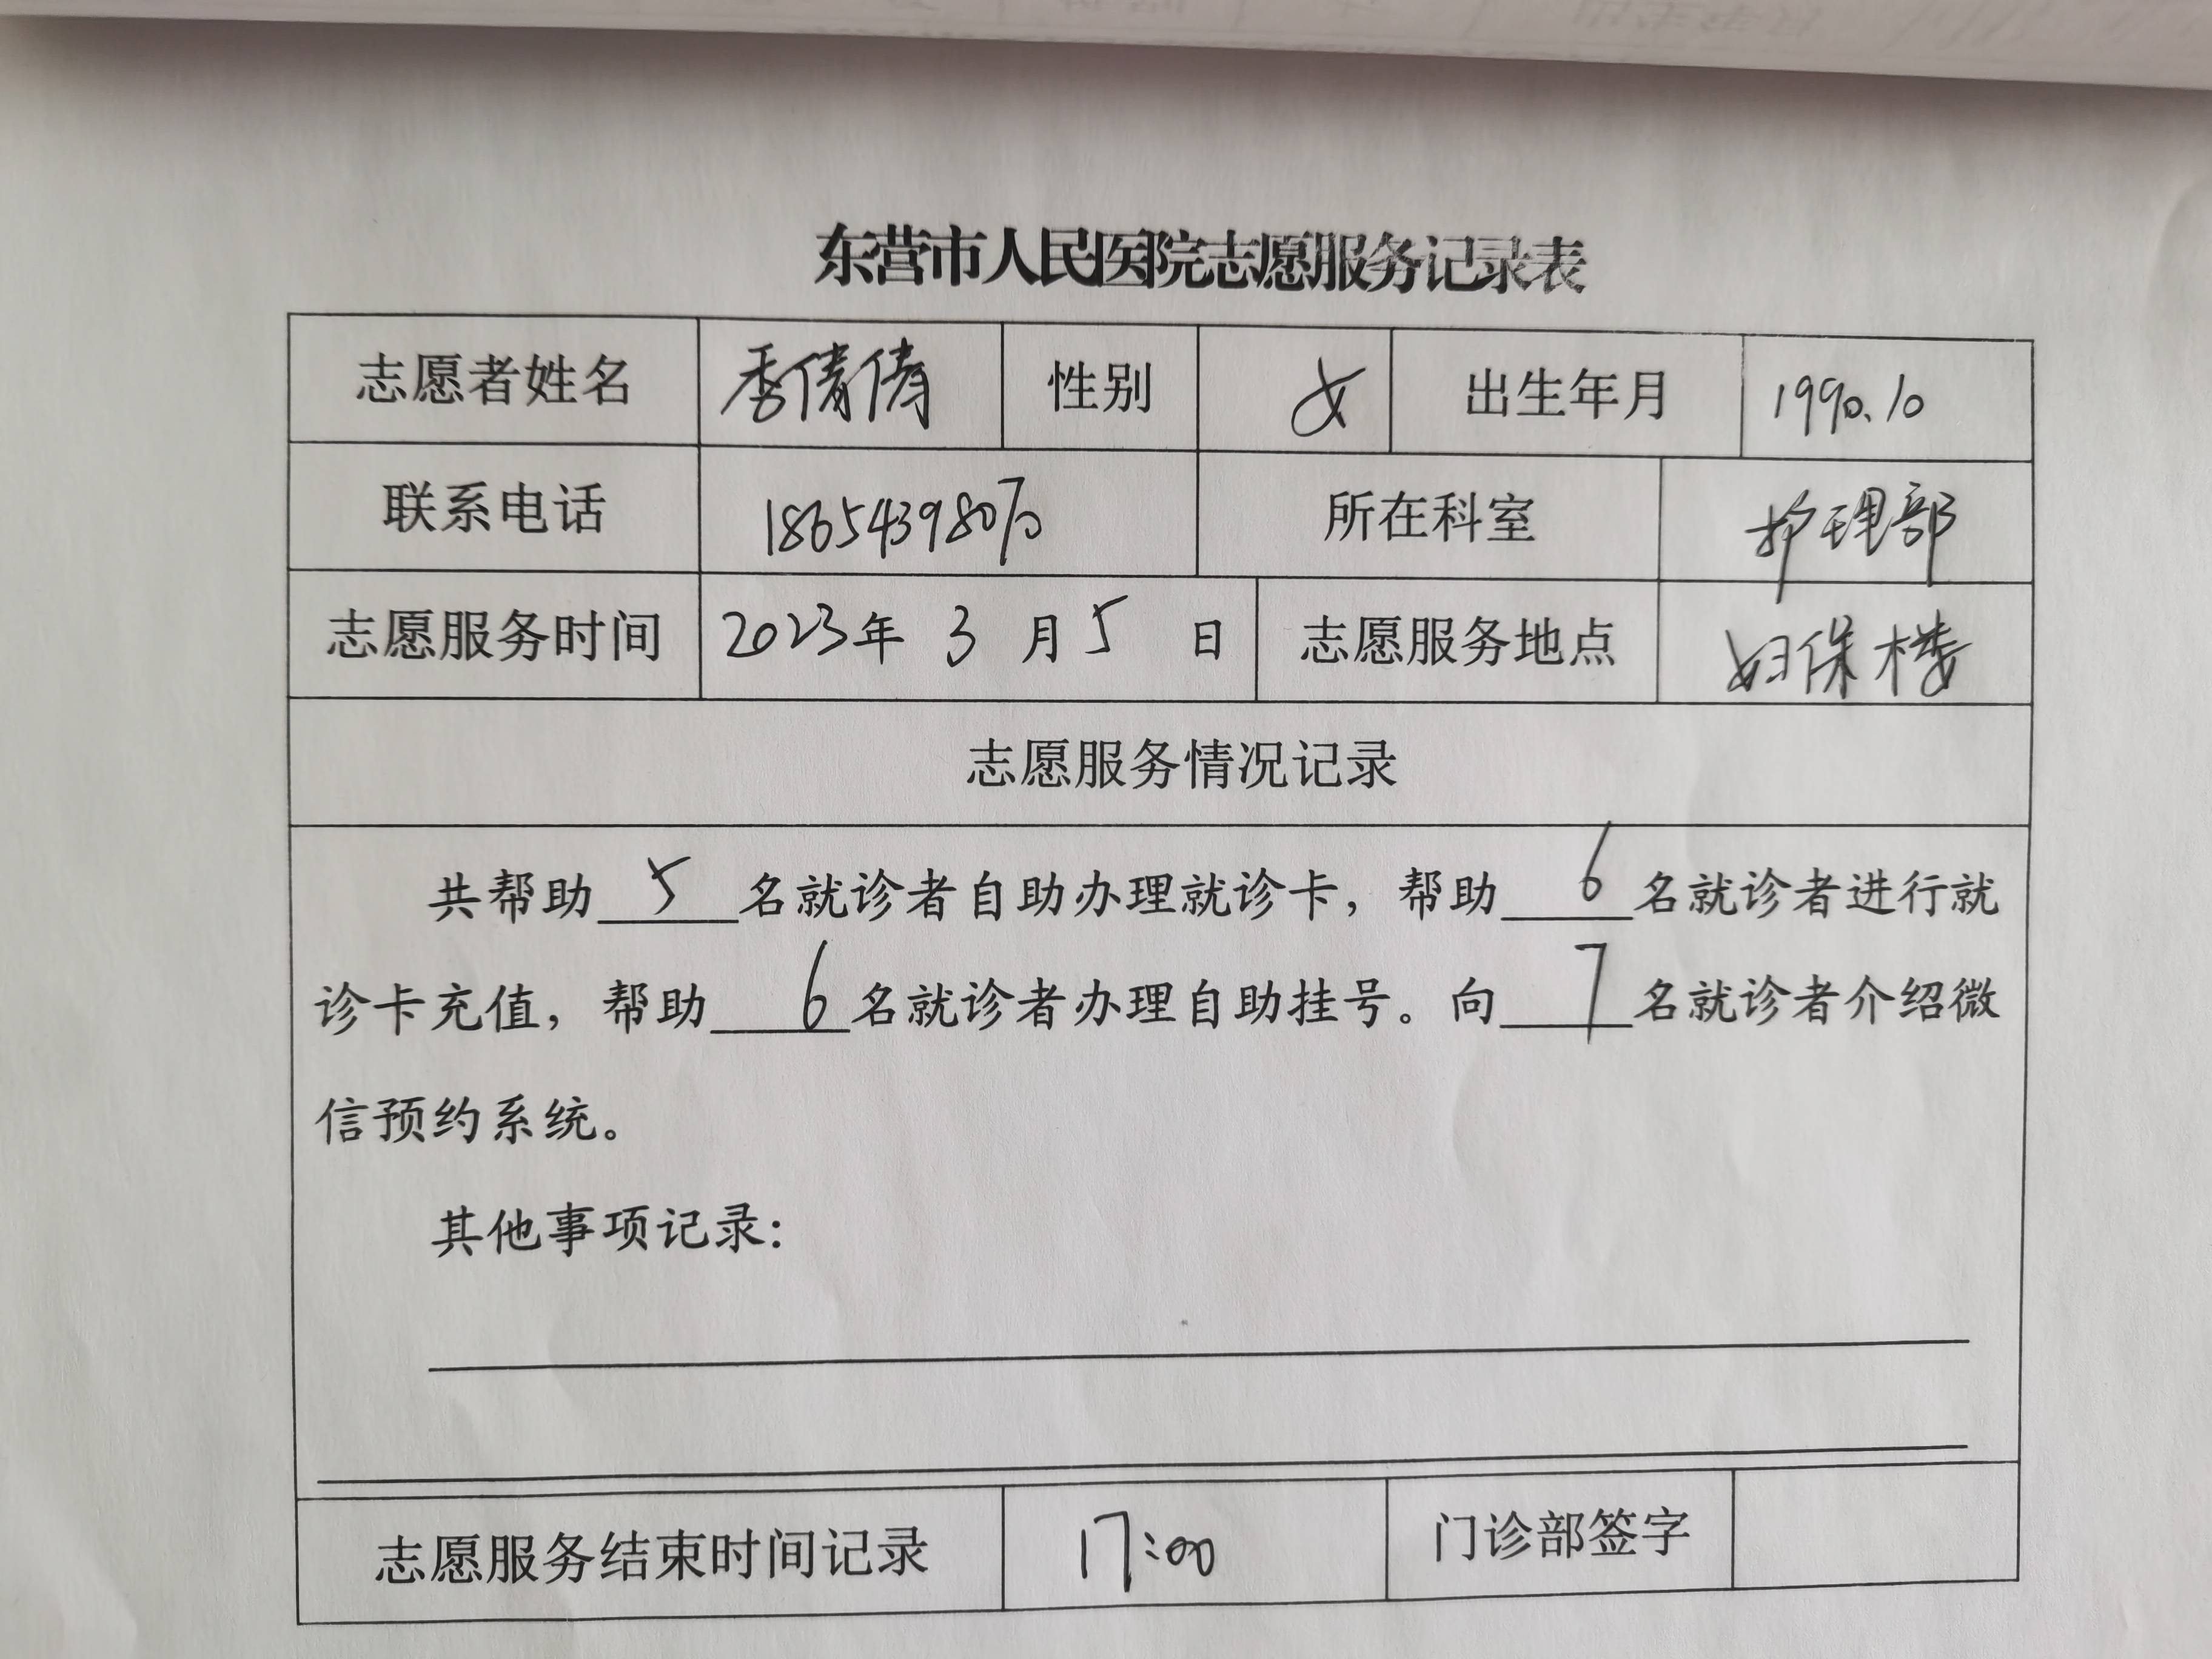 东营市人民医院志愿服务记录表
志愿者姓名 季倩倩 性别 女 出生年月 1990.10
联系电话 所在科室 护理部
志愿服务时间 2023年 3 月 5 日 志愿服务地点 妇保楼
志愿服务情况记录
共帮助 5 名就诊者自助办理就诊卡，帮助 6 名就诊者进行就
诊卡充值，帮助 6 名就诊者办理自助挂号。向 7 名就诊者介绍微
信预约系统。
其他事项记录：
志愿服务结束时间记录 17:00 门诊部签字